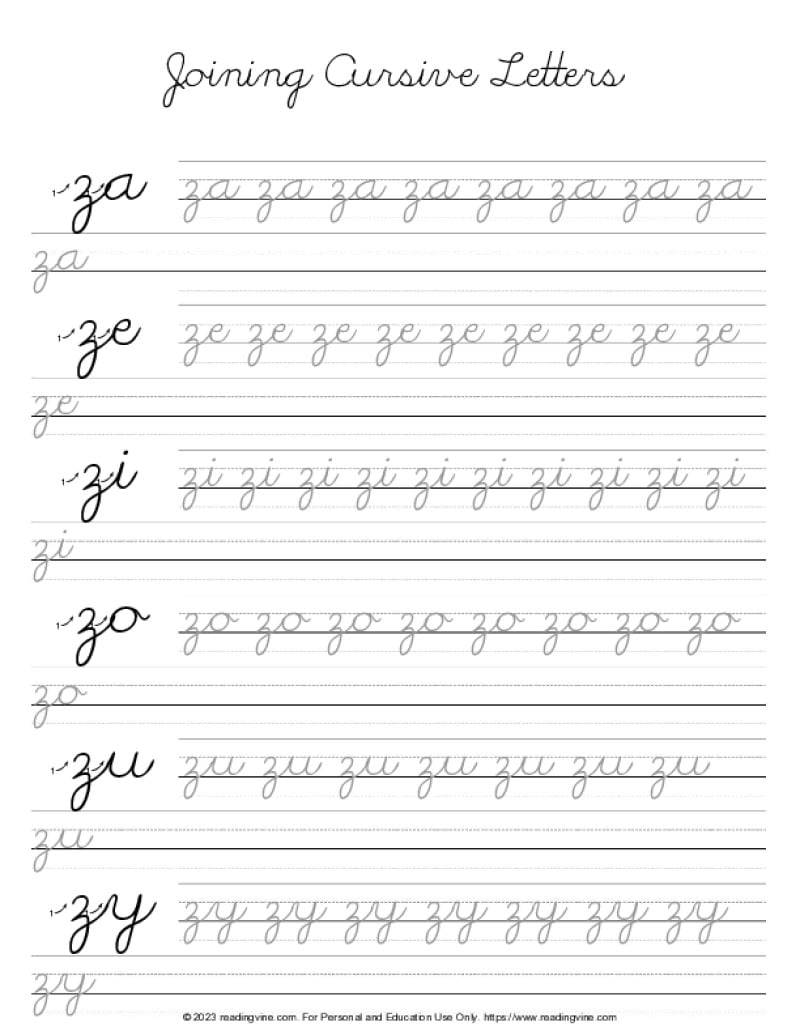 Joining Cursive Letters
za za za za za za za za za
za
ze ze ze ze ze ze ze ze ze ze
ze
zi zi zi zi zi zi zi zi zi zi zi
zi
zo zo zo zo zo zo zo zo zo
zo
zu zu zu zu zu zu zu zu
zu
zy zy zy zy zy zy zy zy
zy
© 2023 readingvine.com. For Personal and Education Use Only. https://www.readingvine.com